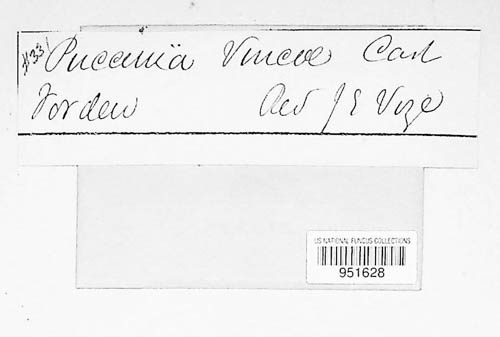 Puccinia Vincae Cast
Forden J E Vize
US NATIONAL FUNGUS COLLECTIONS
951628